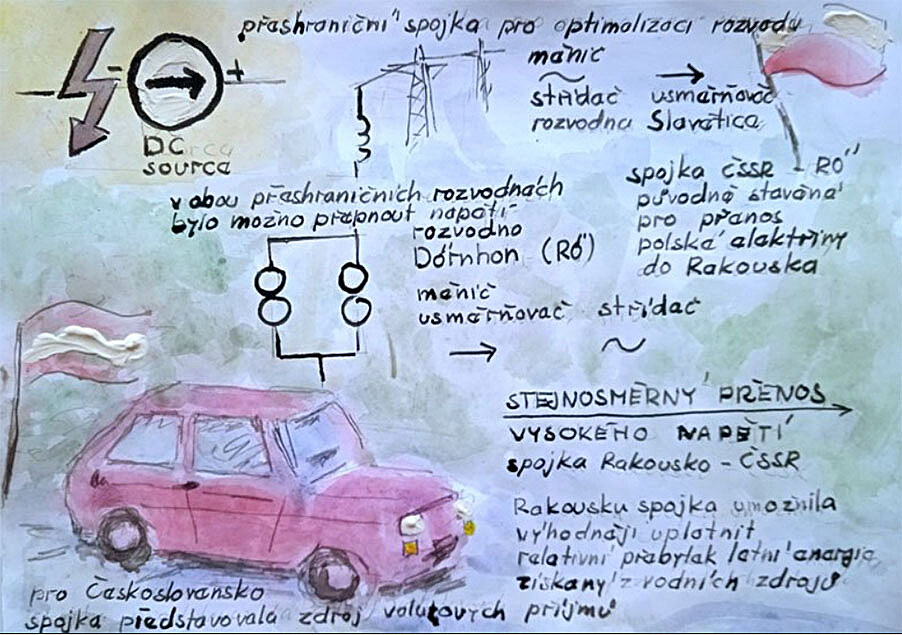 přashraniční spojka pro optimalizaci rozvodu
DC
source
měnič
střídač usměrňovač
rozvodna Slavětica
spojka ČSSR - RÖ
původně stavěná
pro přenos
polské alektřiny
do Rakouska
v obou přashraničních rozvodnách
bylo možno přapnout napětí
rozvodno
Dörnhon (RÖ)
měnič
usměrňovač střídač
STEJNOSMĚRNÝ PŘENOS
VYSOKÉHO NAPĚTÍ
spojka Rakousko - ČSSR
Rakousku spojka umožnila
výhodněji uplatnit
relativní přabytak latní anargia
získaný z vodních zdrojů
pro Československo
spojka představovala zdroj valutových příjmů